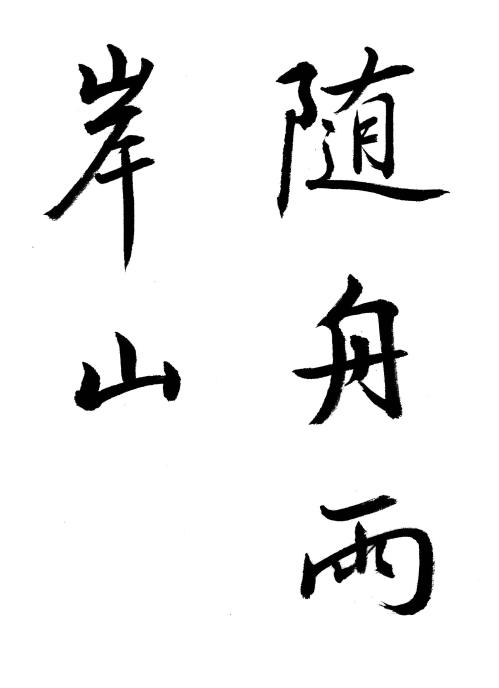 随舟両
岸山